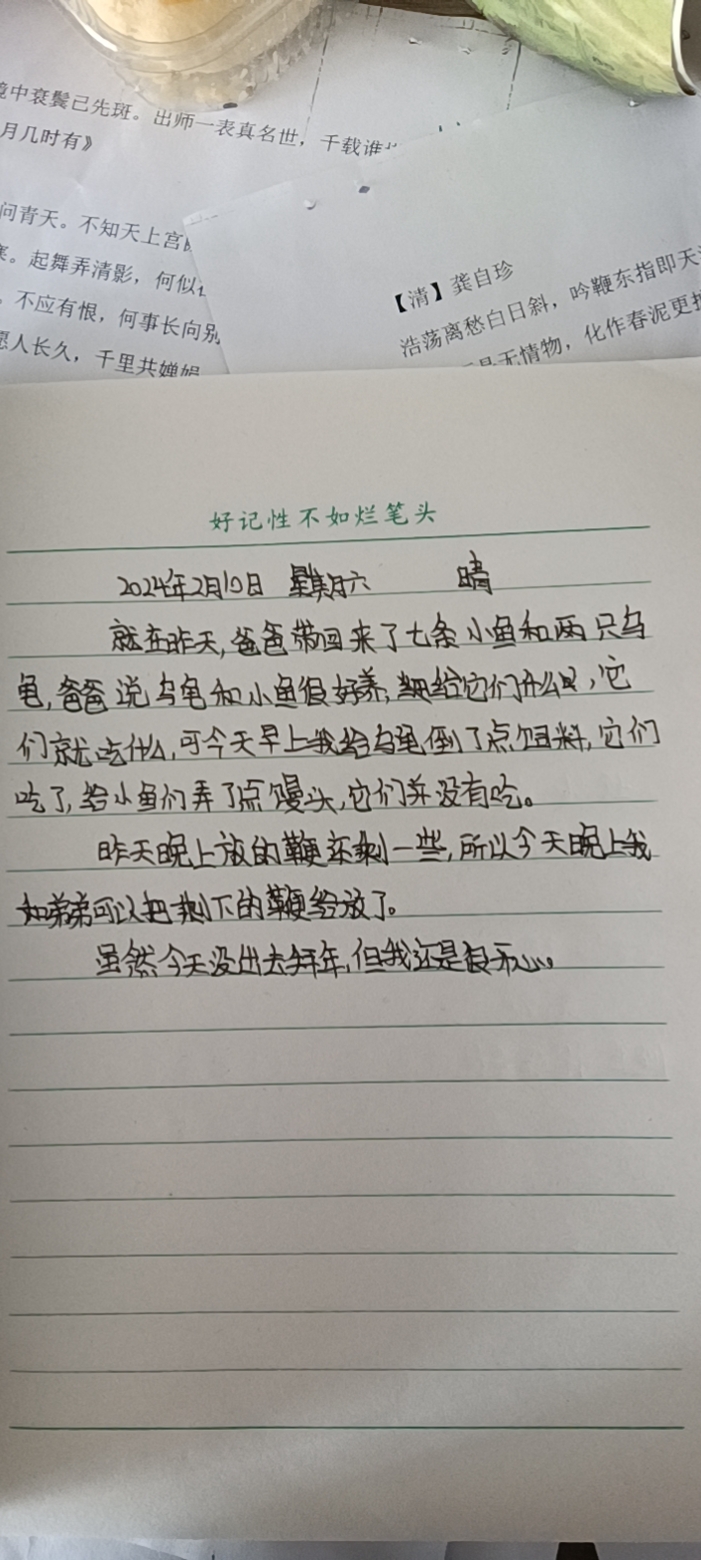 镜中衰鬓已先斑。出师一表真名世，千载谁
月几时有》
问青天。不知天上宫
。起舞弄清影，何似
。不应有恨，何事长向别
愿人长久，千里共婵娟
【清】龚自珍
浩荡离愁白日斜，吟鞭东指即天
是无情物，化作春泥更护
好记性不如烂笔头
2024年2月10日 星期六 晴
就在昨天,爸爸带回来了七条小鱼和两只乌
龟,爸爸说乌龟和小鱼很好养,给它们什么,它
们就吃什么,可今天早上我给乌龟倒了点饲料,它们
吃了,给小鱼们弄了点馒头,它们并没有吃。
昨天晚上放的鞭还剩一些,所以今天晚上我
和弟弟可以把剩下的鞭给放了。
虽然今天没出去拜年,但我还是很开心。